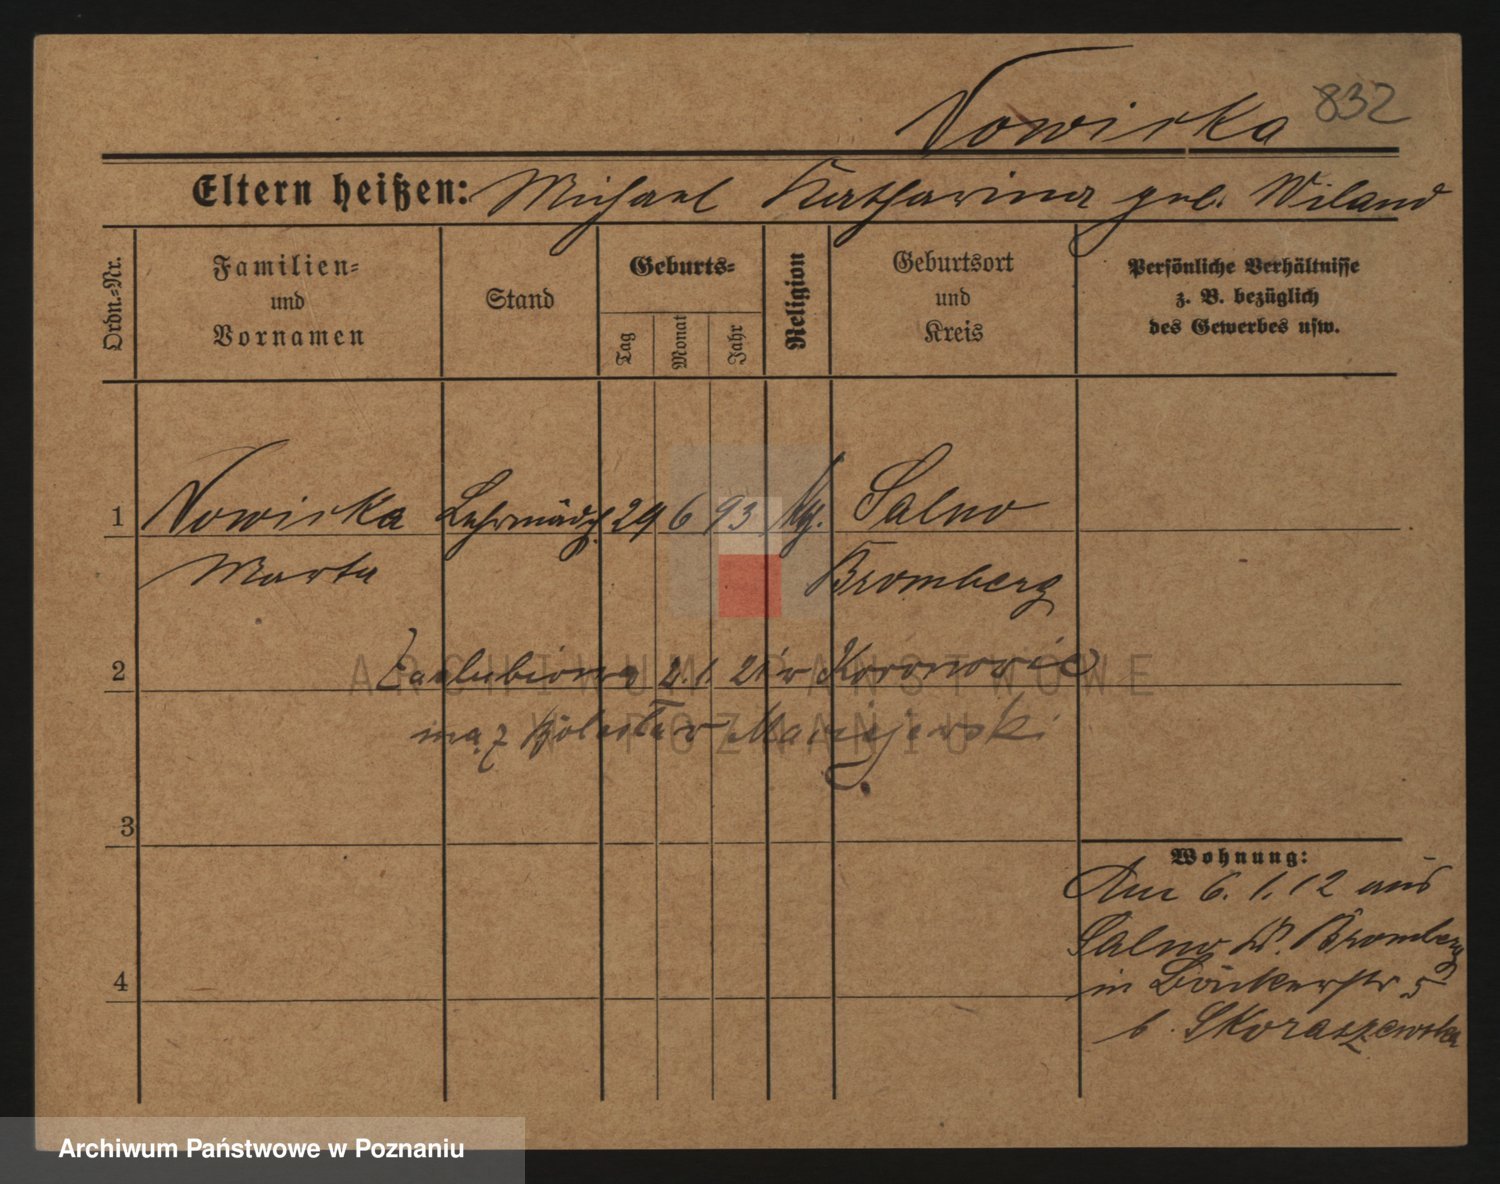 Nowicka 832
Eltern heißen: Michael Katharina geb. Wiland
Ordn.=Nr.
Familien=
und
Vornamen
Stand
Geburts=
Tag
Monat
Jahr
Religion
Geburtsort
und
Kreis
Persönliche Verhältnisse
z. B. bezüglich
des Gewerbes usw.
1 Nowicka Lehrmädch. 29 6 93 Salno
Marta Bromberg
2 Zaślubiona 2.1. 21 w Koronowie
mąż Bolesław Maciejewski
3
4
Wohnung:
Am 6.1.12 aus
Salno Kr. Bromberg
in Bäckerstr 5
b. Skoraszewska
ARCHIWUM PAŃSTWOWE
W POZNANIU
Archiwum Państwowe w Poznaniu